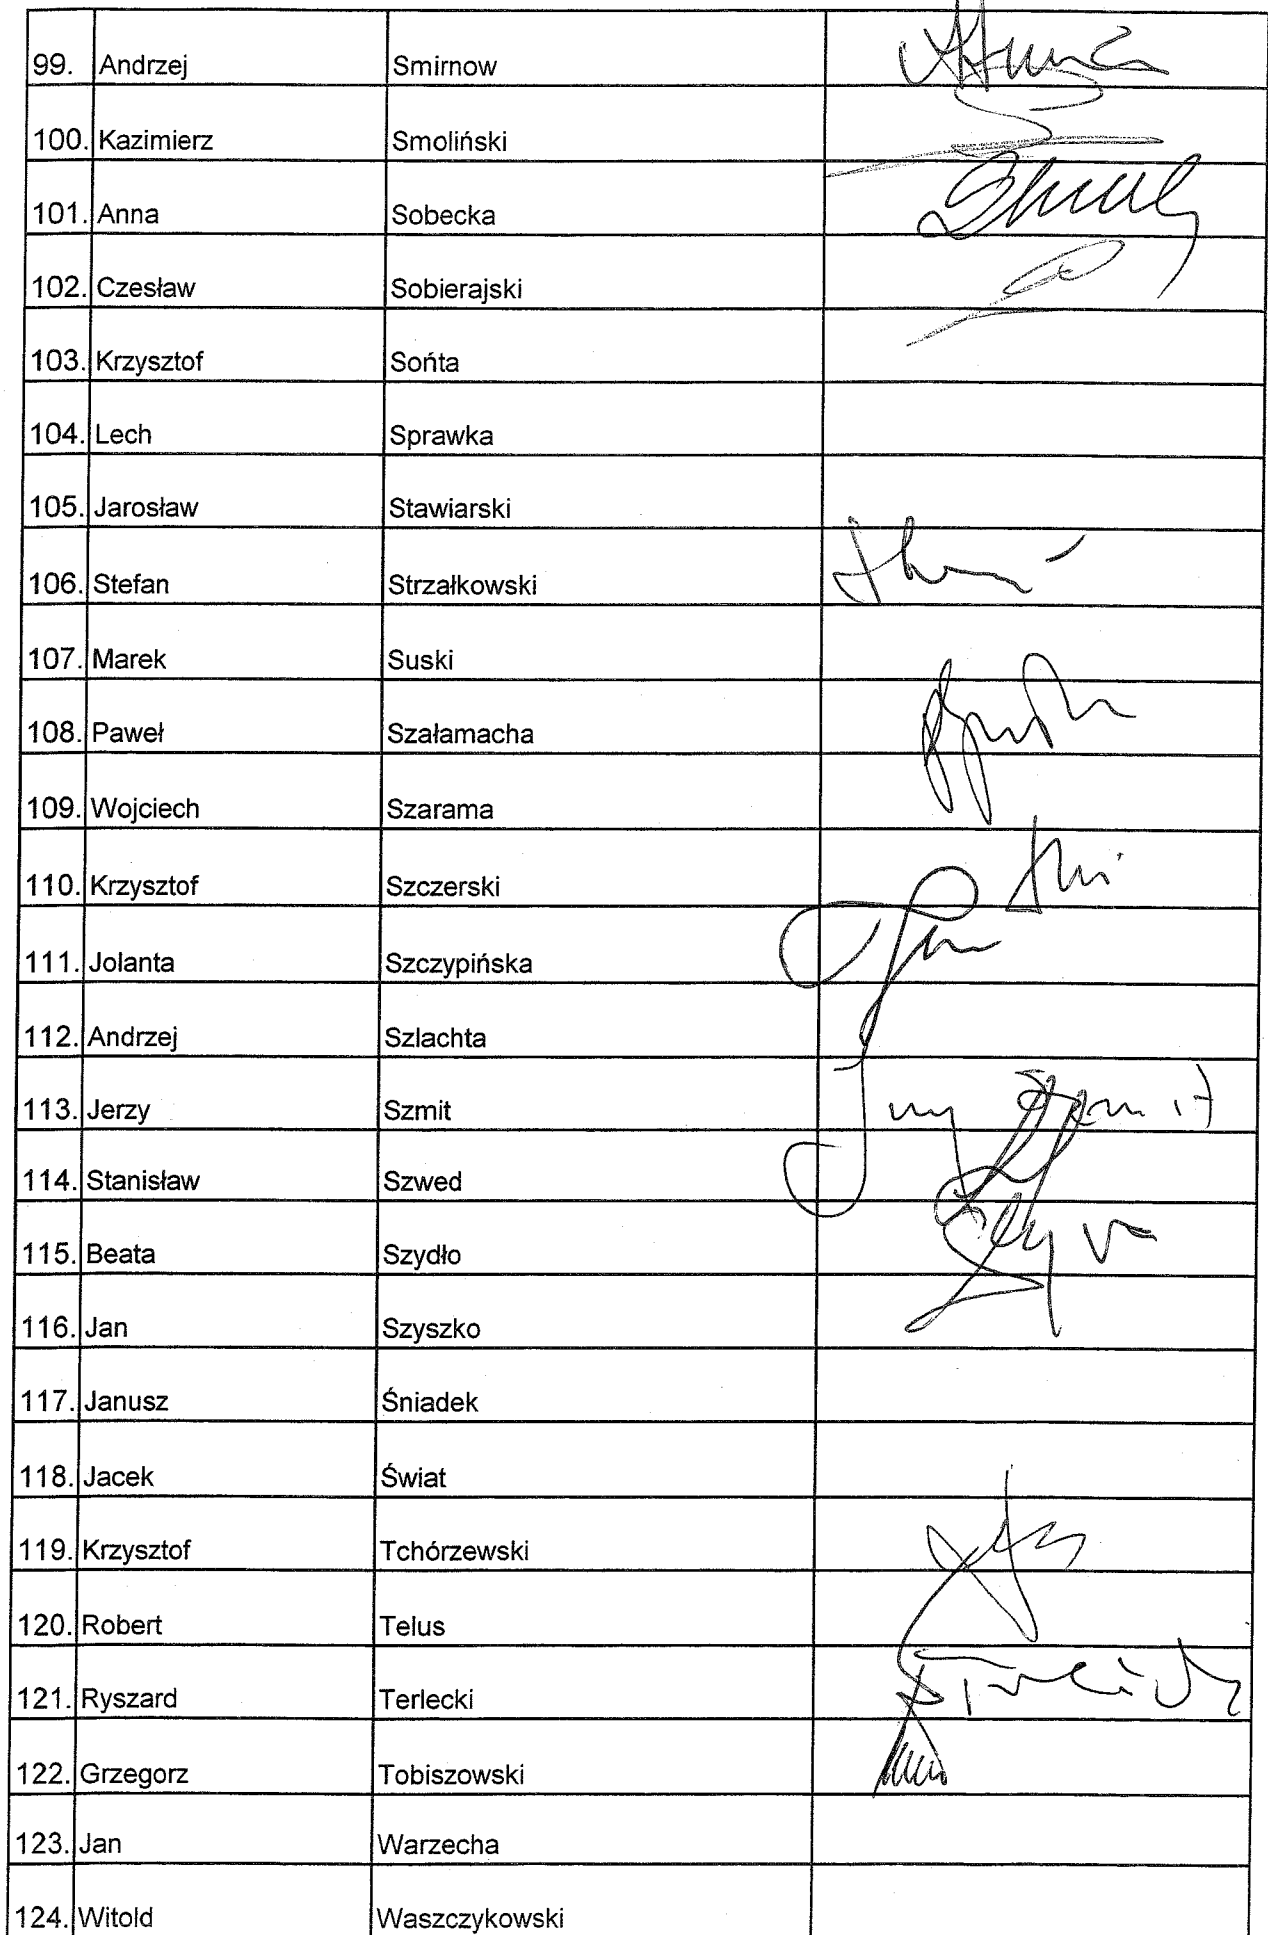 99. Andrzej Smirnow
100. Kazimierz Smoliński
101. Anna Sobecka
102. Czesław Sobierajski
103. Krzysztof Sońta
104. Lech Sprawka
105. Jarosław Stawiarski
106. Stefan Strzałkowski
107. Marek Suski
108. Paweł Szałamacha
109. Wojciech Szarama
110. Krzysztof Szczerski
111. Jolanta Szczypińska
112. Andrzej Szlachta
113. Jerzy Szmit
114. Stanisław Szwed
115. Beata Szydło
116. Jan Szyszko
117. Janusz Śniadek
118. Jacek Świat
119. Krzysztof Tchórzewski
120. Robert Telus
121. Ryszard Terlecki
122. Grzegorz Tobiszowski
123. Jan Warzecha
124. Witold Waszczykowski